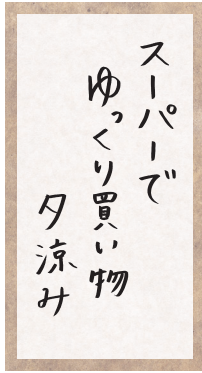 スーパーで
ゆっくり買い物
夕涼み